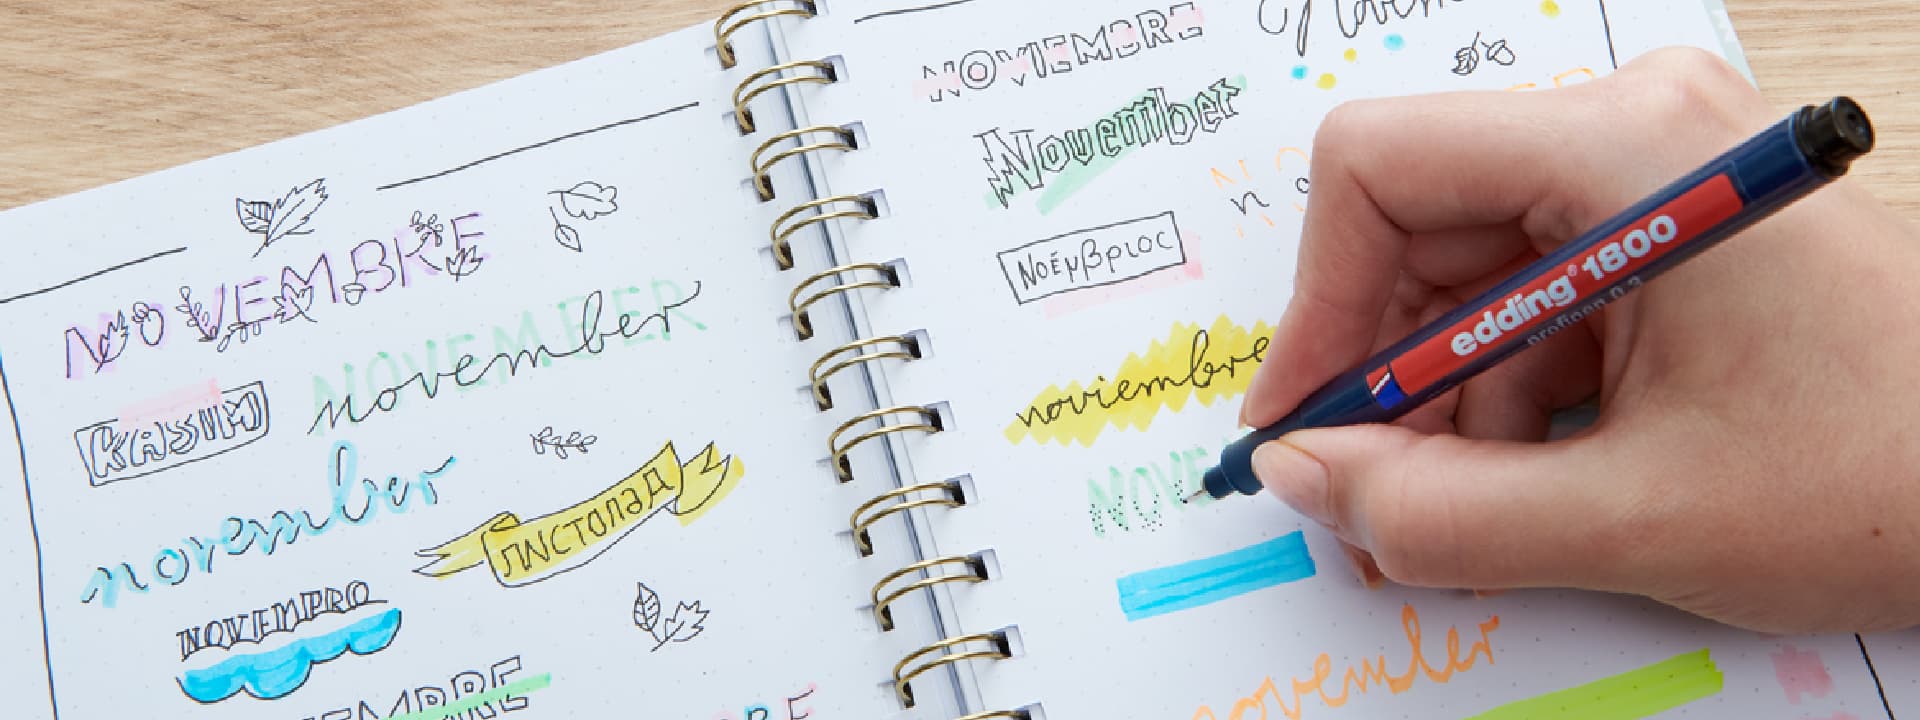 NOVEMBRE
NOVEMBER
november
KASIM
november
ЛИСТОПАД
NOVEMPRO
NOVIEMBRE
November
Νοέμβριος
noviembre
NOVE
november
edding® 1800
profipen 0.3